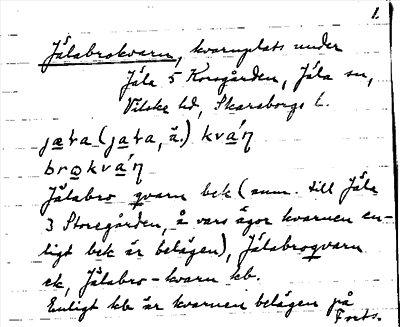 1.
Jälabrokvarn, kvarnplats under
Jäla 5 Korsgården, Jäla sn,
Vilske hd, Skaraborgs l.
jæla (jala, ä.) kván
brokván
Jälabro qvarn bek (num. till Jäla
3 Storegården, å vars ägor kvarnen en-
ligt bek är belägen), Jälabroqvarn
ek, Jälabro-kvarn kb.
Enligt kb är kvarnen belägen på
Forts.